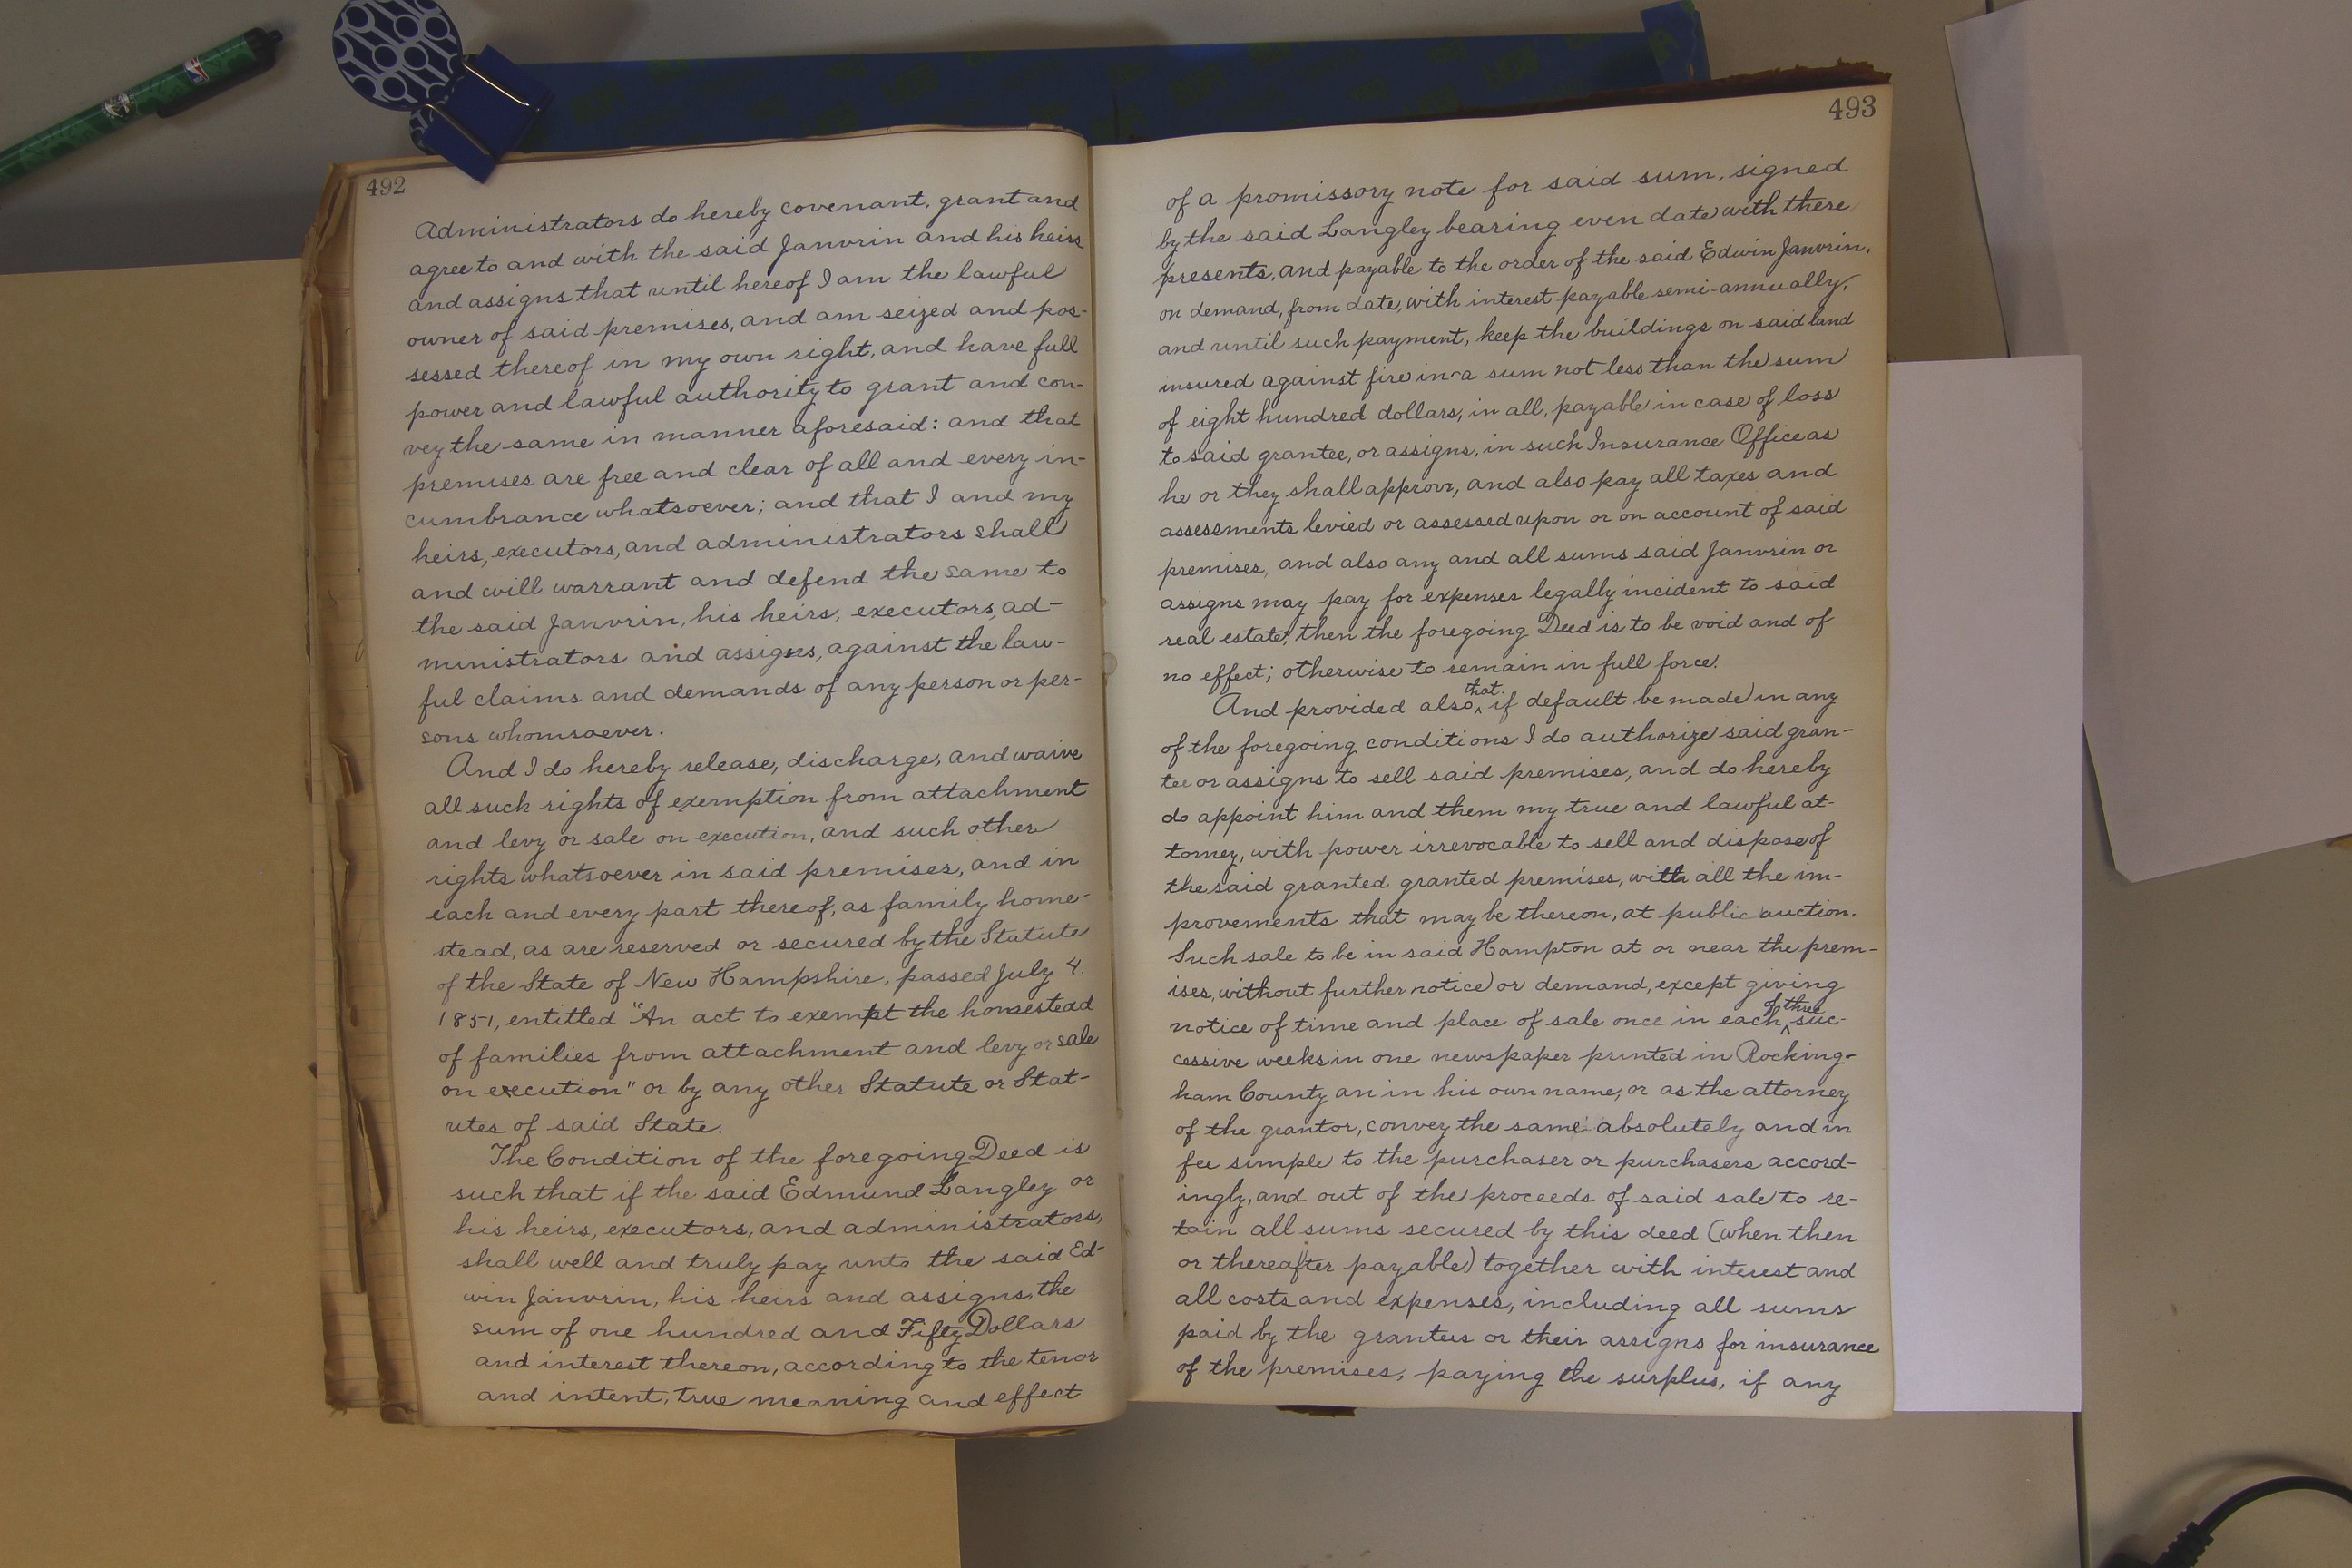 492
Administrators do hereby covenant, grant and
agree to and with the said Janvrin and his heirs
and assigns that until hereof I am the lawful
owner of said premises, and am seized and pos-
sessed thereof in my own right, and have full
power and lawful authority to grant and con-
vey the same in manner aforesaid: and that
premises are free and clear of all and every in-
cumbrance whatsoever; and that I and my
heirs, executors, and administrators shall
and will warrant and defend the same to
the said Janvrin, his heirs, executors, ad-
ministrators and assigns, against the law-
ful claims and demands of any person or per-
sons whomsoever.
And I do hereby release, discharge, and waive
all such rights of exemption from attachment
and levy or sale on execution, and such other
rights whatsoever in said premises, and in
each and every part thereof, as family home-
stead, as are reserved or secured by the Statute
of the State of New Hampshire, passed July 4.
1851, entitled "An act to exempt the homestead
of families from attachment and levy or sale
on execution" or by any other Statute or Stat-
utes of said State.
The Condition of the foregoing Deed is
such that if the said Edmund Langley or
his heirs, executors, and administrators,
shall well and truly pay unto the said Ed-
win Janvrin, his heirs and assigns, the
sum of one hundred and Fifty Dollars
and interest thereon, according to the tenor
and intent, true meaning and effect
493
of a promissory note for said sum, signed
by the said Langley bearing even date with there
presents, and payable to the order of the said Edwin Janvrin,
on demand, from date, with interest payable semi-annually,
and until such payment, keep the buildings on said land
insured against fire in a sum not less than the sum
of eight hundred dollars, in all, payable in case of loss
to said grantee, or assigns, in such Insurance Office as
he or they shall approve, and also pay all taxes and
assessments levied or assessed upon or on account of said
premises, and also any and all sums said Janvrin or
assigns may pay for expenses legally incident to said
real estate; then the foregoing Deed is to be void and of
no effect; otherwise to remain in full force.
And provided also, that if default be made in any
of the foregoing conditions I do authorize said gran-
tee or assigns to sell said premises, and do hereby
do appoint him and them my true and lawful at-
torney, with power irrevocable to sell and dispose of
the said granted granted premises, with all the im-
provements that may be thereon, at public auction.
Such sale to be in said Hampton at or near the prem-
ises, without further notice or demand, except giving
notice of time and place of sale once in each of three suc-
cessive weeks in one newspaper printed in Rocking-
ham County an in his own name, or as the attorney
of the grantor, convey the same absolutely and in
fee simple to the purchaser or purchasers accord-
ingly, and out of the proceeds of said sale to re-
tain all sums secured by this deed (when then
or thereafter payable) together with interest and
all costs and expenses, including all sums
paid by the grantees or their assigns for insurance
of the premises, paying the surplus, if any